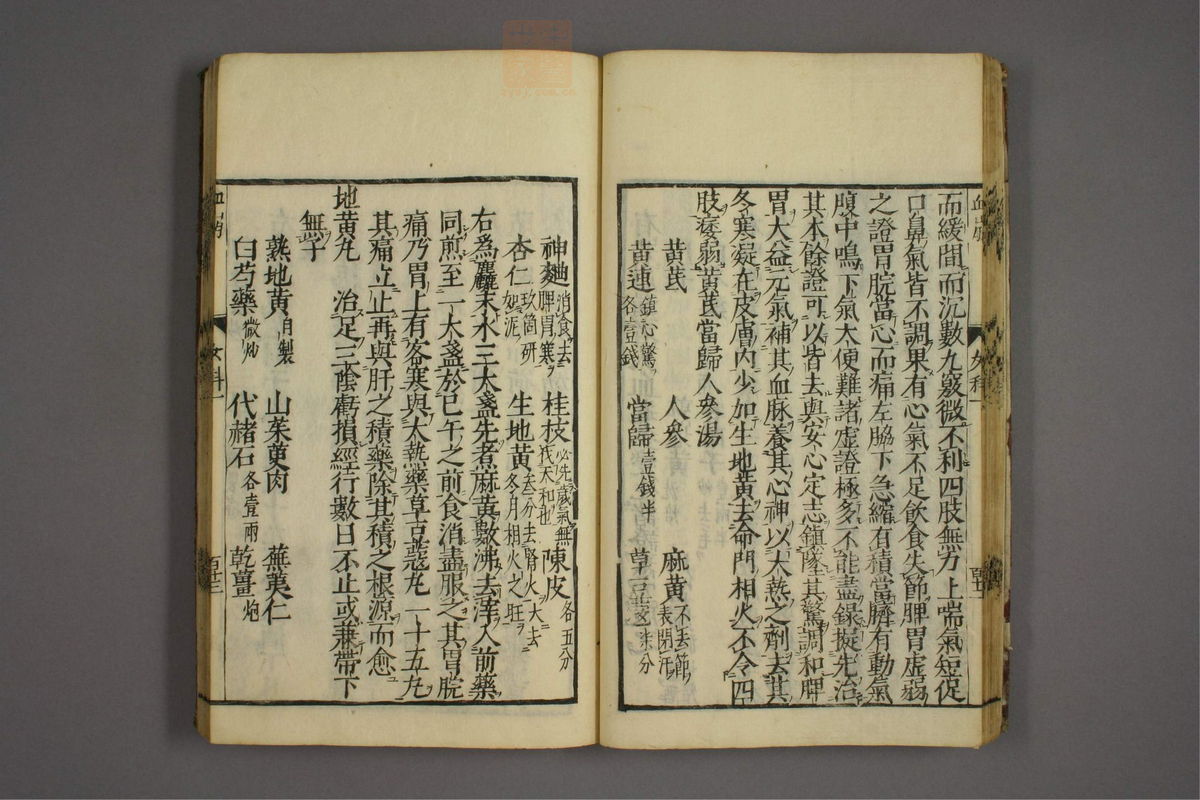 而緩間而沉數九竅微不利四肢無力上喘氣短促
口鼻氣皆不調果有心氣不足飲食失節脾胃虛弱
之證胃脘當心而痛左脇下急縮有積當臍有動氣
腹中鳴下氣大便難諸虛證極多不能盡錄擬先治
其本餘證可以皆去與安心定志鎮墜其驚調和脾
胃大益元氣補其血脉養其心神以大熱之劑去其
冬寒凝在皮膚內少加生地黃去命門相火不令四
肢痿弱黃芪當歸人參湯
黃芪 人參 麻黃不去節 表閉汗
黃連鎮心驚 各壹錢 當歸壹錢半 草豆蔻柒分
女科一
神麯消食去 脾胃寒 桂枝必先歲氣無 伐天和也 陳皮各五分
杏仁玖箇研 如泥 生地黃去分去腎火大去 冬月相火之旺
右為麤末水三大盞先煮麻黃數沸去滓入前藥
同煎至一大盞於巳午之前食消盡服之其胃脘
痛乃胃上有客寒與大熱藥草豆蔻丸一十五丸
其痛立止再與肝之積藥除其積之根源而愈
地黃丸 治足三陰虧損經行數日不止或兼帶下
無子
熟地黃自製 山茱萸肉 蕪荑仁
白芍藥微炒 代赭石各壹兩 乾薑炮
女科一